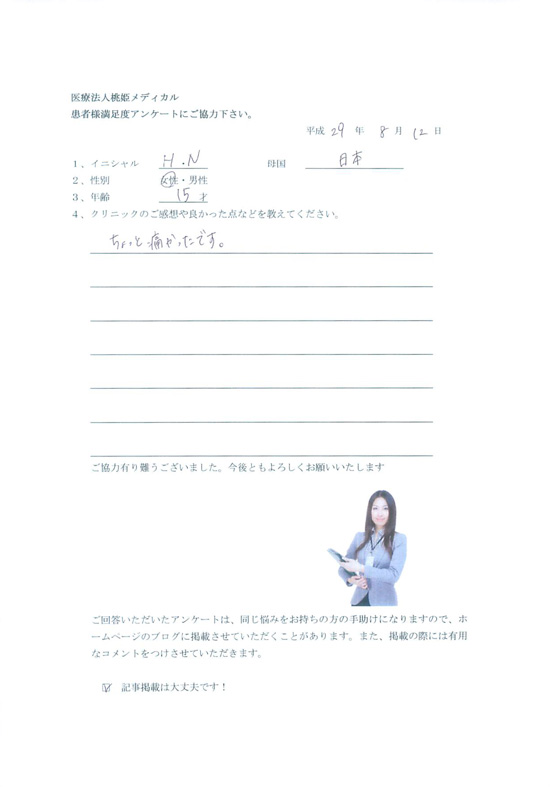 医療法人桃姫メディカル
患者様満足度アンケートにご協力下さい。
平成 29 年 8 月 12 日
1、イニシャル H.N 母国 日本
2、性別 女性・男性
3、年齢 15 才
4、クリニックのご感想や良かった点などを教えてください。
ちょっと痛かったです。
ご協力有り難うございました。今後ともよろしくお願いいたします
ご回答いただいたアンケートは、同じ悩みをお持ちの方の手助けになりますので、ホ
ームページのブログに掲載させていただくことがあります。また、掲載の際には有用
なコメントをつけさせていただきます。
☑ 記事掲載は大丈夫です！